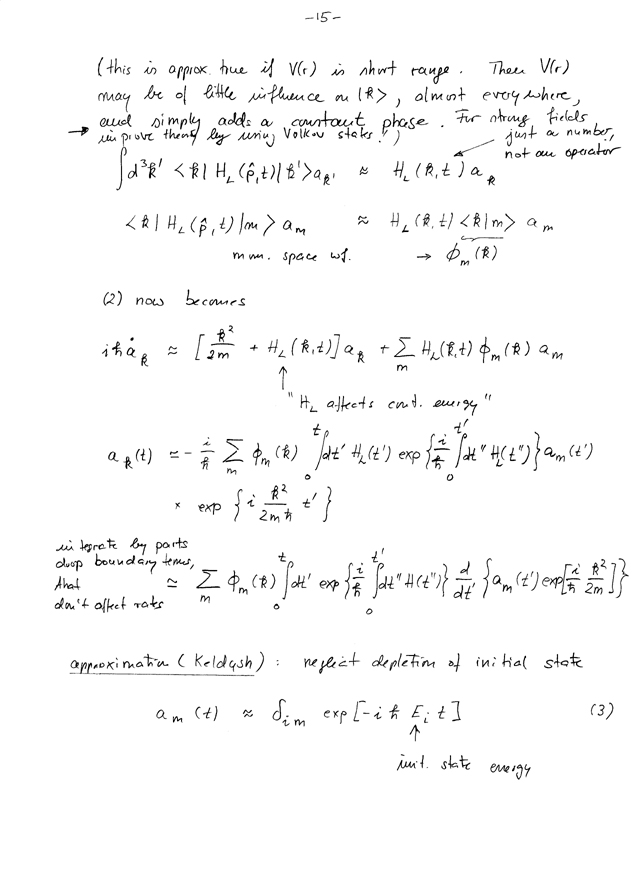 -15-
(this is approx. true if V(r) is short range. Then V(r)
may be of little influence on |k>, almost everywhere,
and simply adds a constant phase. For strong fields
→ improve theory by using Volkov states!)
just a number,
not an operator
∫d³k' <k| H_L(p̂,t)|k'>a_k' ≈ H_L(k,t) a_k
<k| H_L(p̂,t)|m> a_m ≈ H_L(k,t) <k|m> a_m
mm. space wf. → ϕ_m(k)
(2) now becomes
iħȧ_k ≈ [k²/2m + H_L(k,t)]a_k + Σ_m H_L(k,t) ϕ_m(k) a_m
↑
"H_L affects cont. energy"
a_k(t) ≃ - i/ħ Σ_m ϕ_m(k) ∫_0^t dt' H_L(t') exp{i/ħ ∫_0^t' dt'' H_L(t'')}a_m(t')
× exp {i k²/2mħ t'}
integrate by parts
drop boundary terms,
that
don't affect rates
≃ Σ_m ϕ_m(k) ∫_0^t dt' exp{i/ħ ∫_0^t' dt'' H(t'')} d/dt' {a_m(t') exp[i/ħ k²/2m]}
approximation (Keldysh): neglect depletion of initial state
a_m(t) ≈ δ_im exp[-iħ E_i t] (3)
↑
init. state energy